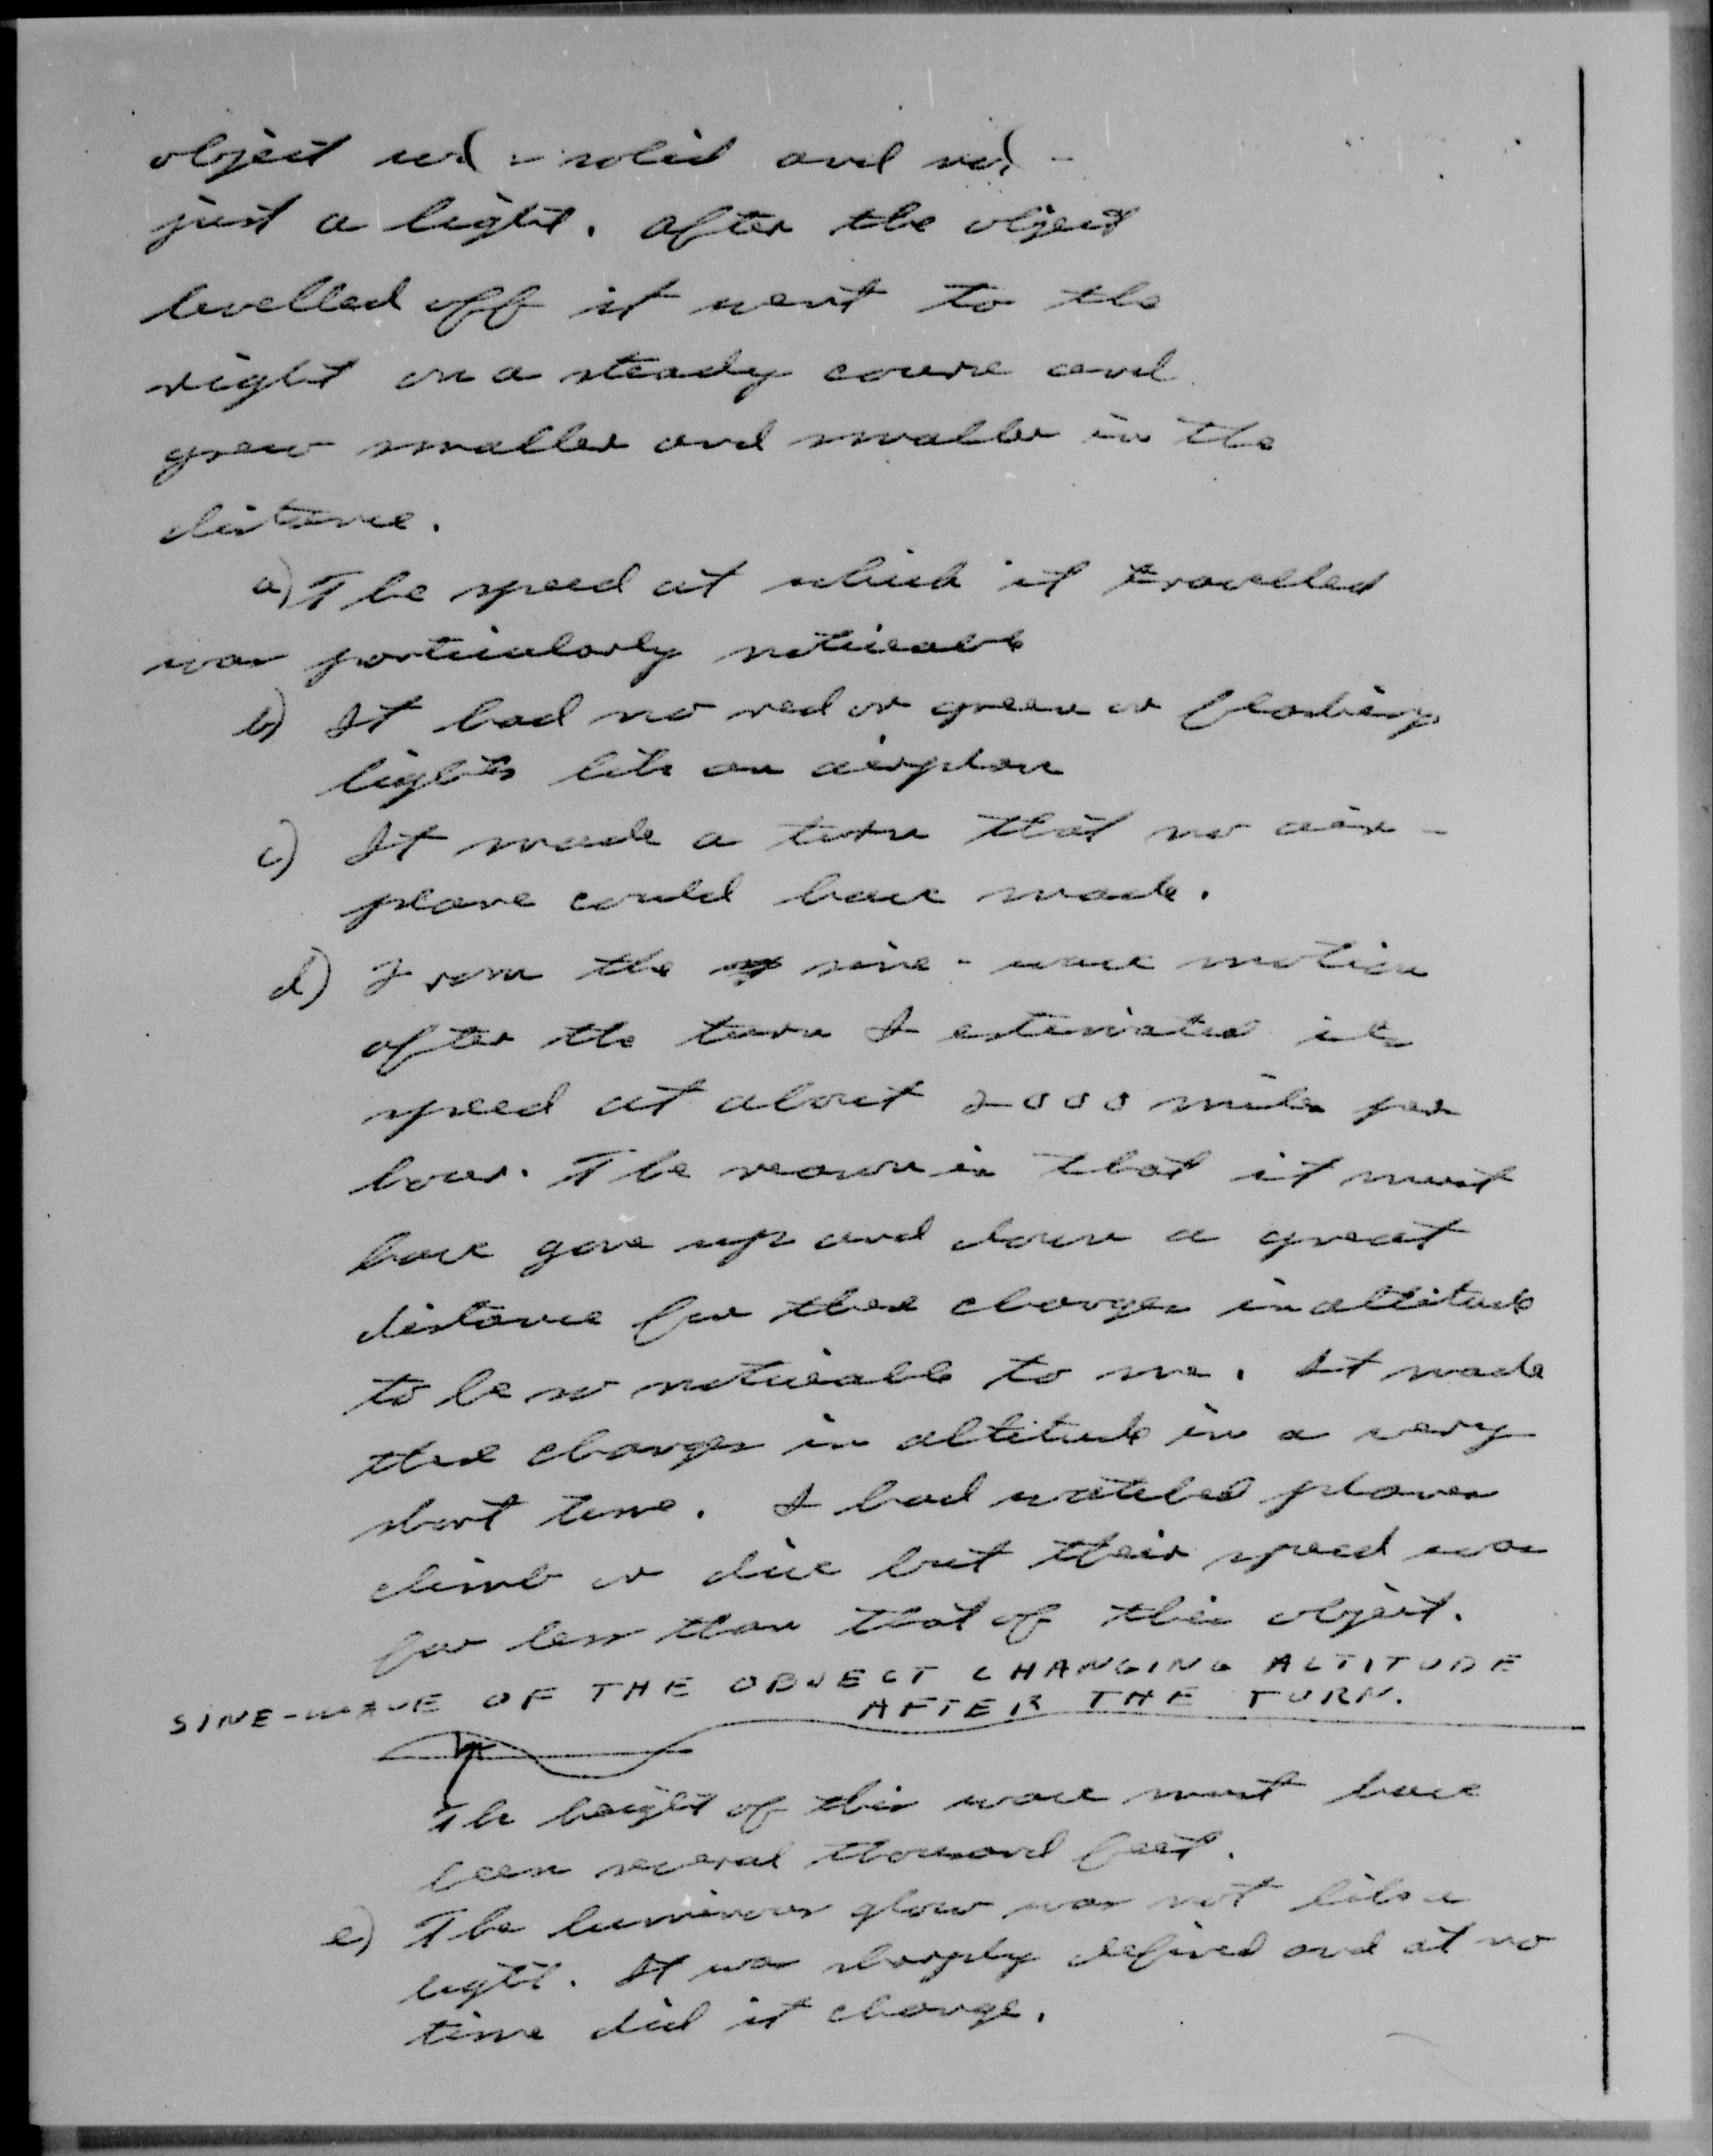 object solid and not
just a light. After the object
levelled off it went to the
right on a steady course and
grew smaller and smaller in the
distance.
a) The speed at which it travelled
was particularly noticeable
b) It had no red or green or flashing
lights like an airplane
c) It made a turn that no air-
plane could have made.
d) From the sine-wave motion
after the turn I estimated its
speed at about 2000 miles per
hour. The reason is that it must
have gone up and down a great
distance for these changes in altitude
to be so noticeable to me. It made
these changes in altitude in a very
short time. I had watched planes
climb or dive but their speed was
far less than that of this object.
SINE-WAVE OF THE OBJECT CHANGING ALTITUDE
AFTER THE TURN.
The height of this wave must have
been several thousand feet.
e) The luminous glow was not like a
light. It was sharply defined and at no
time did it change.